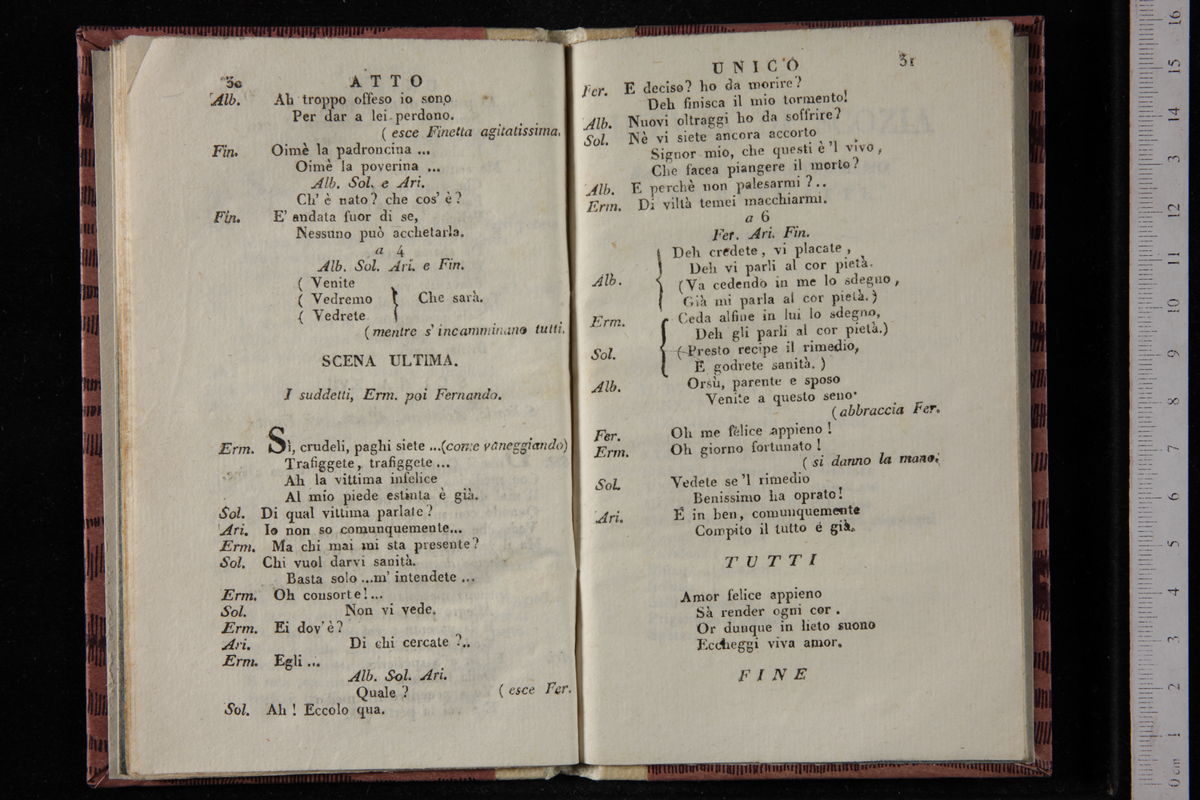 30 ATTO
Alb. Ah troppo offeso io sono
Per dar a lei perdono.
( esce Finetta agitatissima.
Fin. Oimè la padroncina ...
Oimè la poverina ...
Alb. Sol. e Ari.
Ch' è nato? che cos' è?
Fin. E' andata fuor di se,
Nessuno può acchetarla.
a 4
Alb. Sol. Ari. e Fin.
( Venite
( Vedremo } Che sarà.
( Vedrete
(mentre s' incamminano tutti.
SCENA ULTIMA.
I suddetti, Erm. poi Fernando.
Erm. Sì, crudeli, paghi siete ...(come vaneggiando)
Trafiggete, trafiggete...
Ah la vittima infelice
Al mio piede estinta è già.
Sol. Di qual vittima parlate?
Ari. Io non so comunquemente...
Erm. Ma chi mai mi sta presente?
Sol. Chi vuol darvi sanità.
Basta solo ...m' intendete ...
Erm. Oh consorte!...
Sol. Non vi vede.
Erm. Ei dov'è?
Ari. Di chi cercate ?..
Erm. Egli ...
Alb. Sol. Ari.
Quale ? ( esce Fer.
Sol. Ah ! Eccolo qua.
UNICO 31
Fer. E deciso? ho da morire?
Deh finisca il mio tormento!
Alb. Nuovi oltraggi ho da soffrire?
Sol. Nè vi siete ancora accorto
Signor mio, che questi è 'l vivo,
Che facea piangere il morto?
Alb. E perchè non palesarmi ?..
Erm. Di viltà temei macchiarmi.
a 6
Fer. Ari. Fin.
Deh credete, vi placate,
Deh vi parli al cor pietà.
Alb. (Va cedendo in me lo sdegno,
Già mi parla al cor pietà.)
Erm. Ceda alfine in lui lo sdegno,
Deh gli parli al cor pietà.)
Sol. (Presto recipe il rimedio,
E godrete sanità. )
Alb. Orsù, parente e sposo
Venite a questo seno.
(abbraccia Fer.
Fer. Oh me felice appieno !
Erm. Oh giorno fortunato !
( si danno la mano.
Sol. Vedete se 'l rimedio
Benissimo ha oprato!
Ari. E in ben, comunquemente
Compito il tutto é già.
TUTTI
Amor felice appieno
Sà render ogni cor .
Or dunque in lieto suono
Eccheggi viva amor.
FINE
0 cm 1 2 3 4 5 6 7 8 9 10 11 12 13 14 15 16